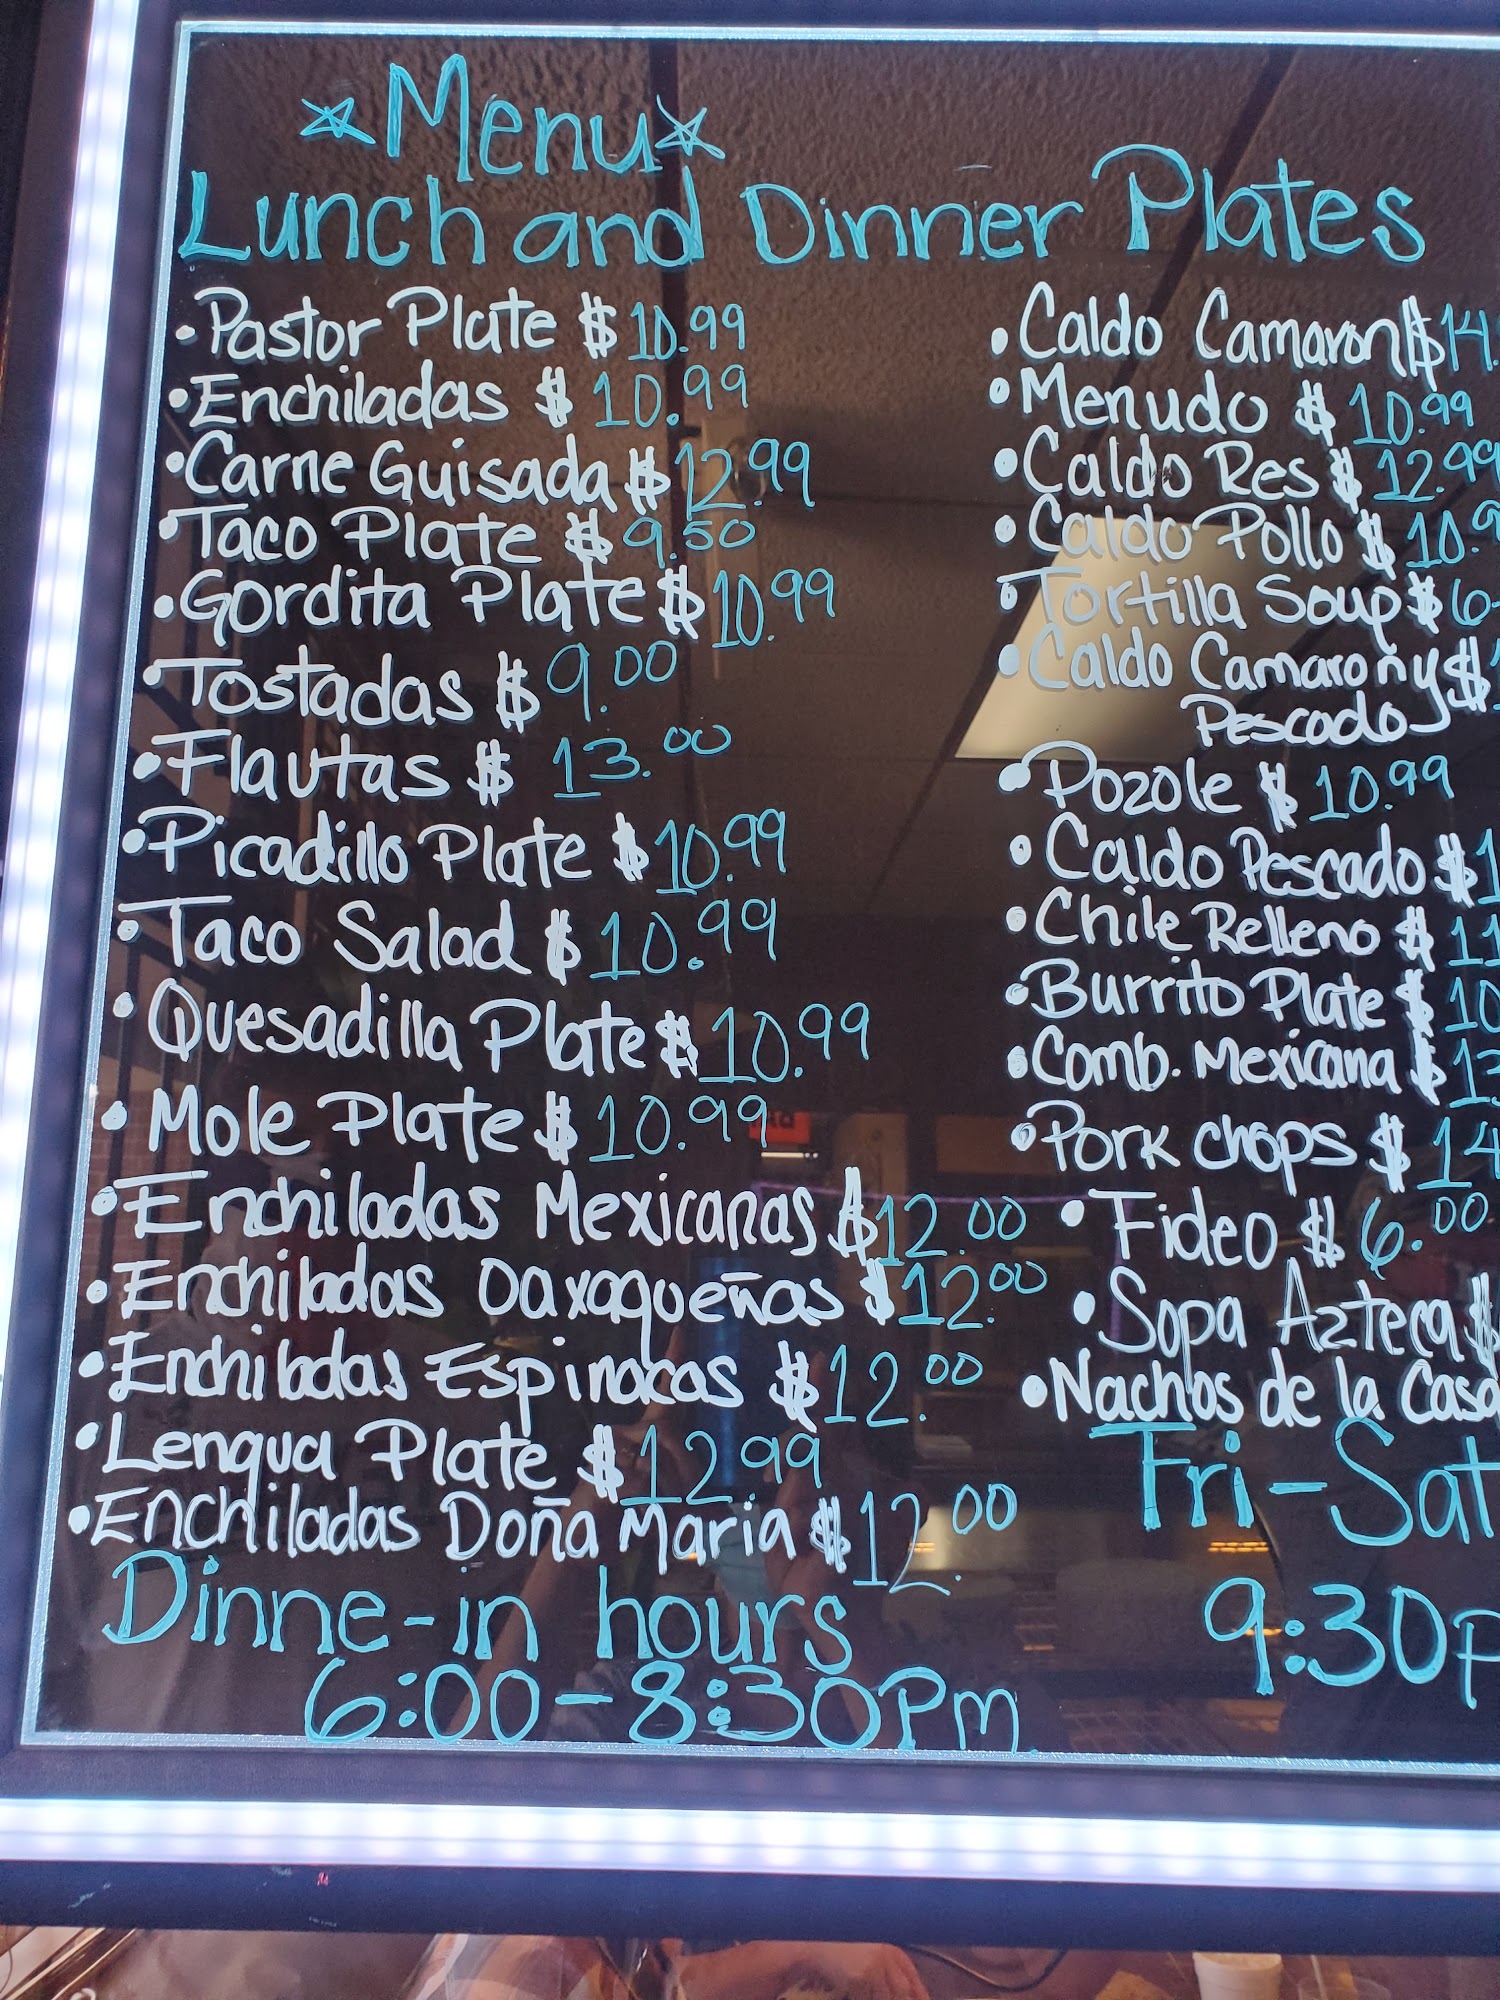 Menu
Lunch and Dinner Plates
• Pastor Plate $ 10.99
• Enchiladas $ 10.99
• Carne Guisada $ 12.99
• Taco Plate $ 9.50
• Gordita Plate $ 10.99
• Tostadas $ 9.00
• Flautas $ 13.00
• Picadillo Plate $ 10.99
• Taco Salad $ 10.99
• Quesadilla Plate $ 10.99
• Mole Plate $ 10.99
• Enchiladas Mexicanas $ 12.00
• Enchiladas Oaxaqueñas $ 12.00
• Enchiladas Espinacas $ 12.00
• Lengua Plate $ 12.99
• Enchiladas Doña Maria $ 12.00
Dinne-in hours
6:00-8:30Pm
• Caldo Camaron $ 14.
• Menudo $ 10.99
• Caldo Res $ 12.99
• Caldo Pollo $ 10.9
• Tortilla Soup $ 6
• Caldo Camaron y $
Pescado
• Pozole $ 10.99
• Caldo Pescado $ 1
• Chile Relleno $ 11
• Burrito Plate $ 10
• Comb. Mexicana $ 13
• Pork chops $ 14
• Fideo $ 6.00
• Sopa Azteca $
• Nachos de la Casa
Fri-Sat
9:30P